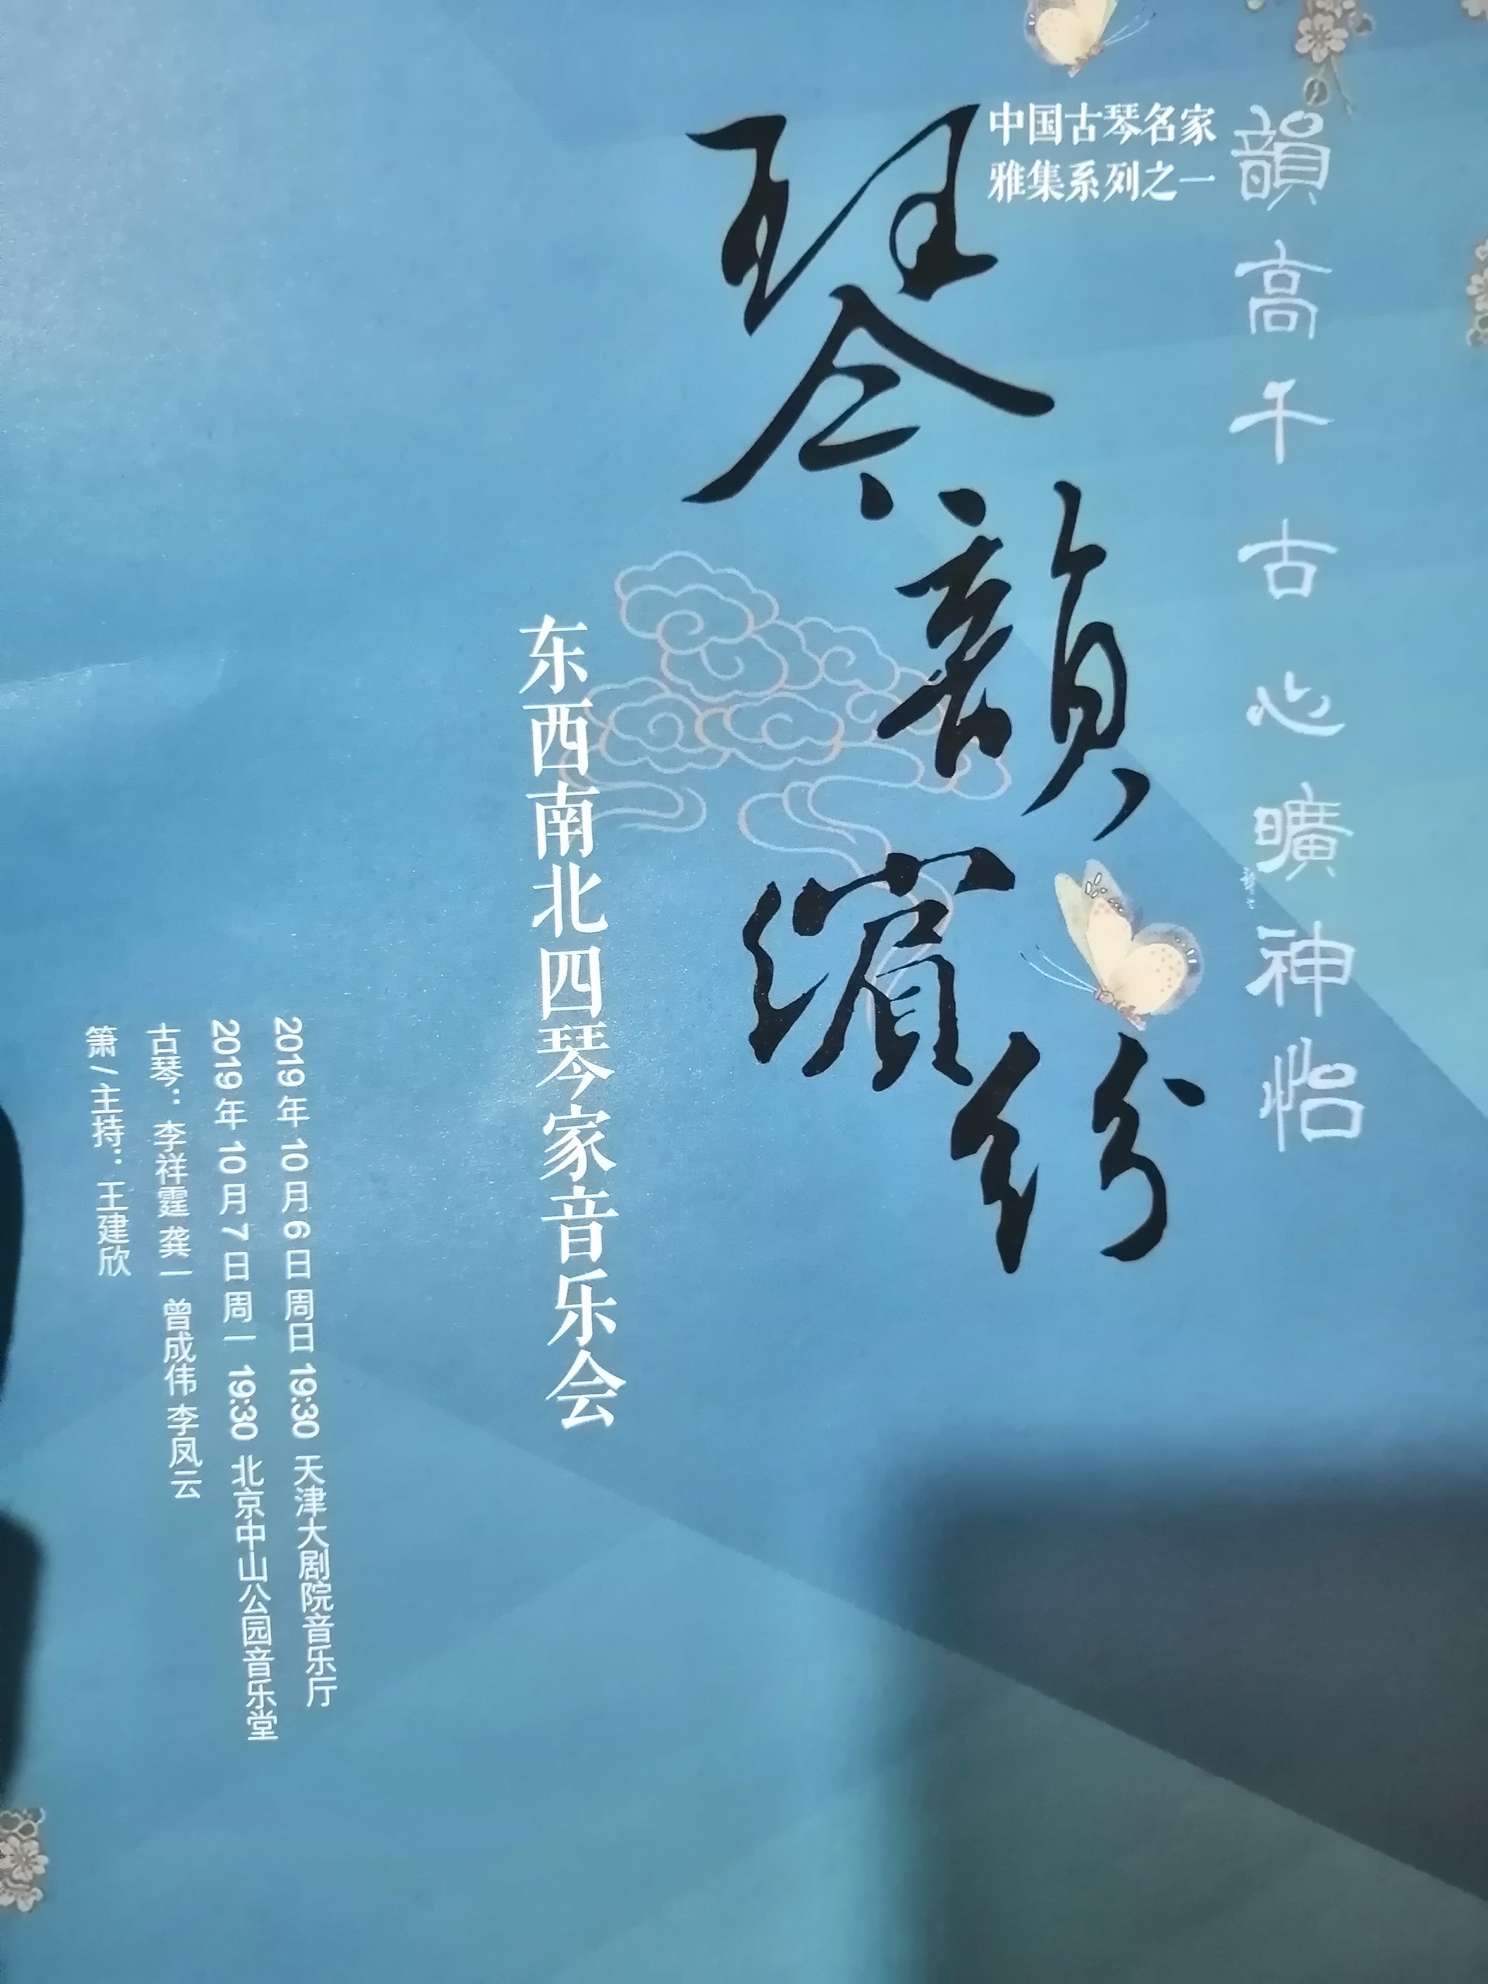 韻高千古心曠神怡
中国古琴名家
雅集系列之一
琴韻繽紛
东西南北四琴家音乐会
2019年10月6日周日 19:30 天津大剧院音乐厅
2019年10月7日周一 19:30 北京中山公园音乐堂
古琴：李祥霆 龚一 曾成伟 李凤云
箫/主持：王建欣